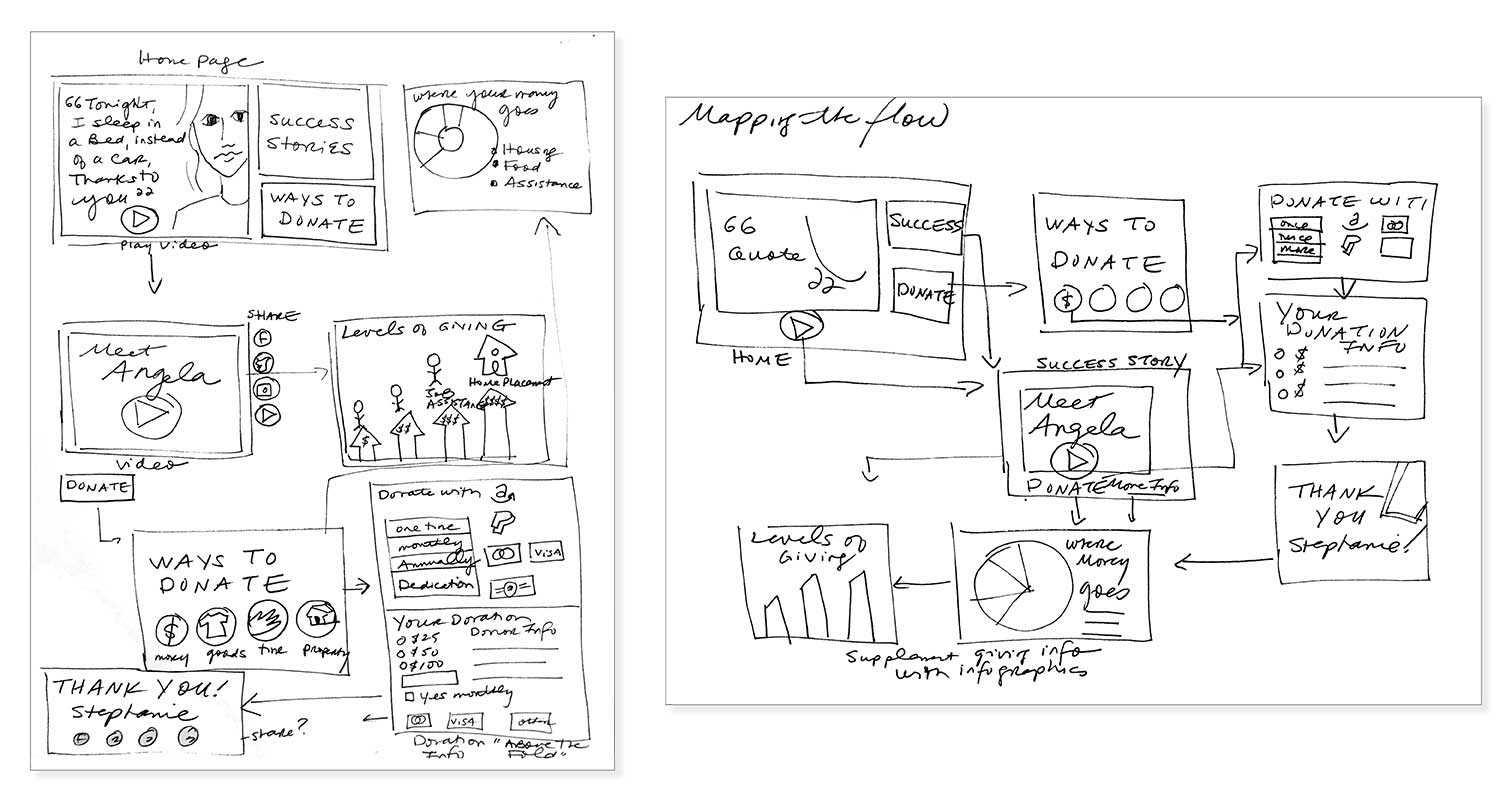 Home Page
66 Tonight,
I sleep in
a Bed, instead
of a car,
Thanks to
you 22
Play Video
SUCCESS
STORIES
WAYS TO
DONATE
where your money
goes
Housing
Food
Assistance
Meet
Angela
Video
SHARE
DONATE
Levels of GIVING
$
$$
JOB
ASSISTANCE
$$$
Home Placement
$$$$
WAYS TO
DONATE
$
money goods time property
Donate with a
one time
monthly
Annually
Dedication
VISA
Your Donation
$25
$50
$100
Donor Info
Yes monthly
VISA
other
Donation "Above the
Info Fold"
THANK YOU!
Stephanie
share?
Mapping the flow
66
Quote
22
HOME
SUCCESS
DONATE
WAYS TO
DONATE
$
DONATE WITH
once
twice
more
a
YOUR
DONATION
INFO
$
$
$
SUCCESS STORY
Meet
Angela
DONATE More Info
THANK
YOU
Stephanie!
Levels of
Giving
where
Money
goes
Supplement giving info
with infographics